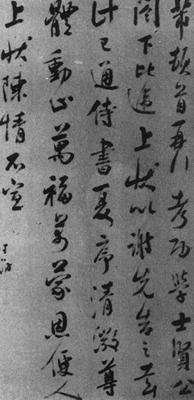 頓首再拜考功學士賢公
閣下比遣上狀以謝先告之
計已通侍書夏序清微尊
體動止萬福蒙恩便人
上狀陳情不宣